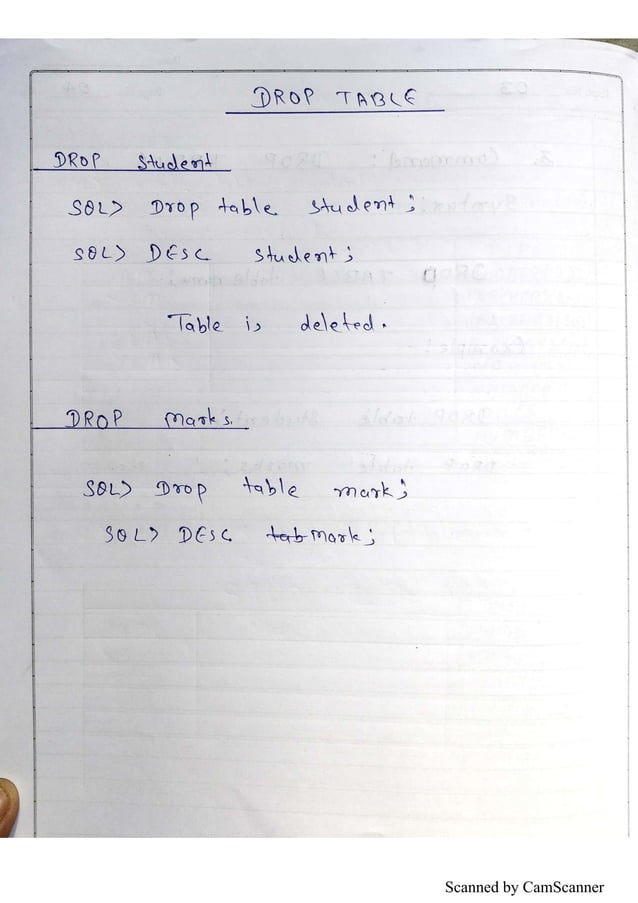 DROP TABLE
DROP Student
SQL> Drop table student;
SQL> DESC student;
Table is deleted.
DROP marks.
SQL> Drop table mark;
SQL> DESC tab mark;
Scanned by CamScanner